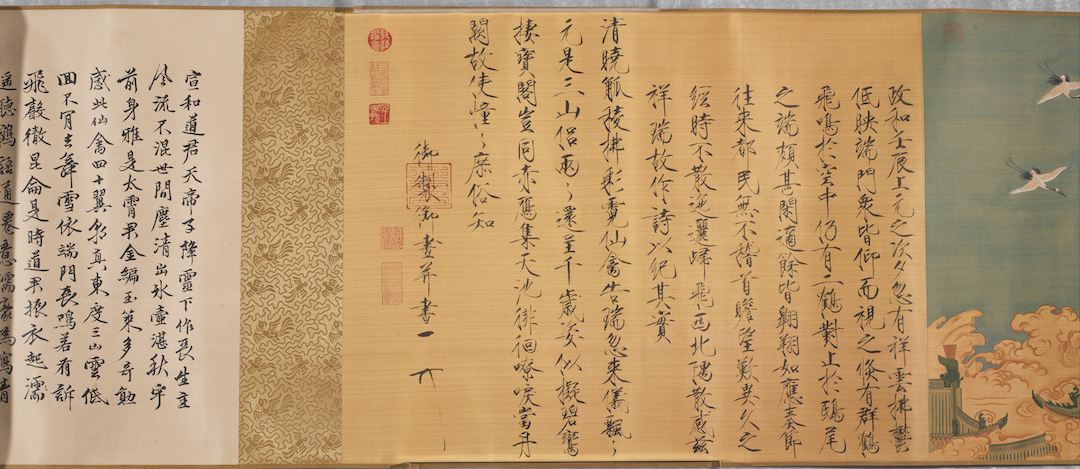 政和壬辰上元之次夕忽有祥雲拂鬱
低映端門衆皆仰而視之倏有群鶴
飛鳴於空中仍有二鶴對止於鴟尾
之端頗甚閑適餘皆翱翔如應奏節
往來都民無不稽首瞻望歎異久之
經時不散迤邐歸飛西北隅散感茲
祥瑞故作詩以紀其實
清曉觚稜拂彩霓仙禽告瑞忽來儀飄〻
元是三山侶兩〻還呈千歲姿似擬碧鸞
棲寶閣豈同赤鴈集天池徘徊嘹唳當丹
闕故使憧〻庶俗知
御製御畫并書
宣和道君天帝子降靈下作長生主
風流不混世間塵清出氷壺湛秋宇
前身雅是太霄君金編玉策多奇勳
感此仙禽四十翼真東度三山雲低
回不肯去舞雪依端門長鳴若有訴
飛聲徹昆侖是時道君振衣起
遥聽鶴語通意濡豪爲寫青